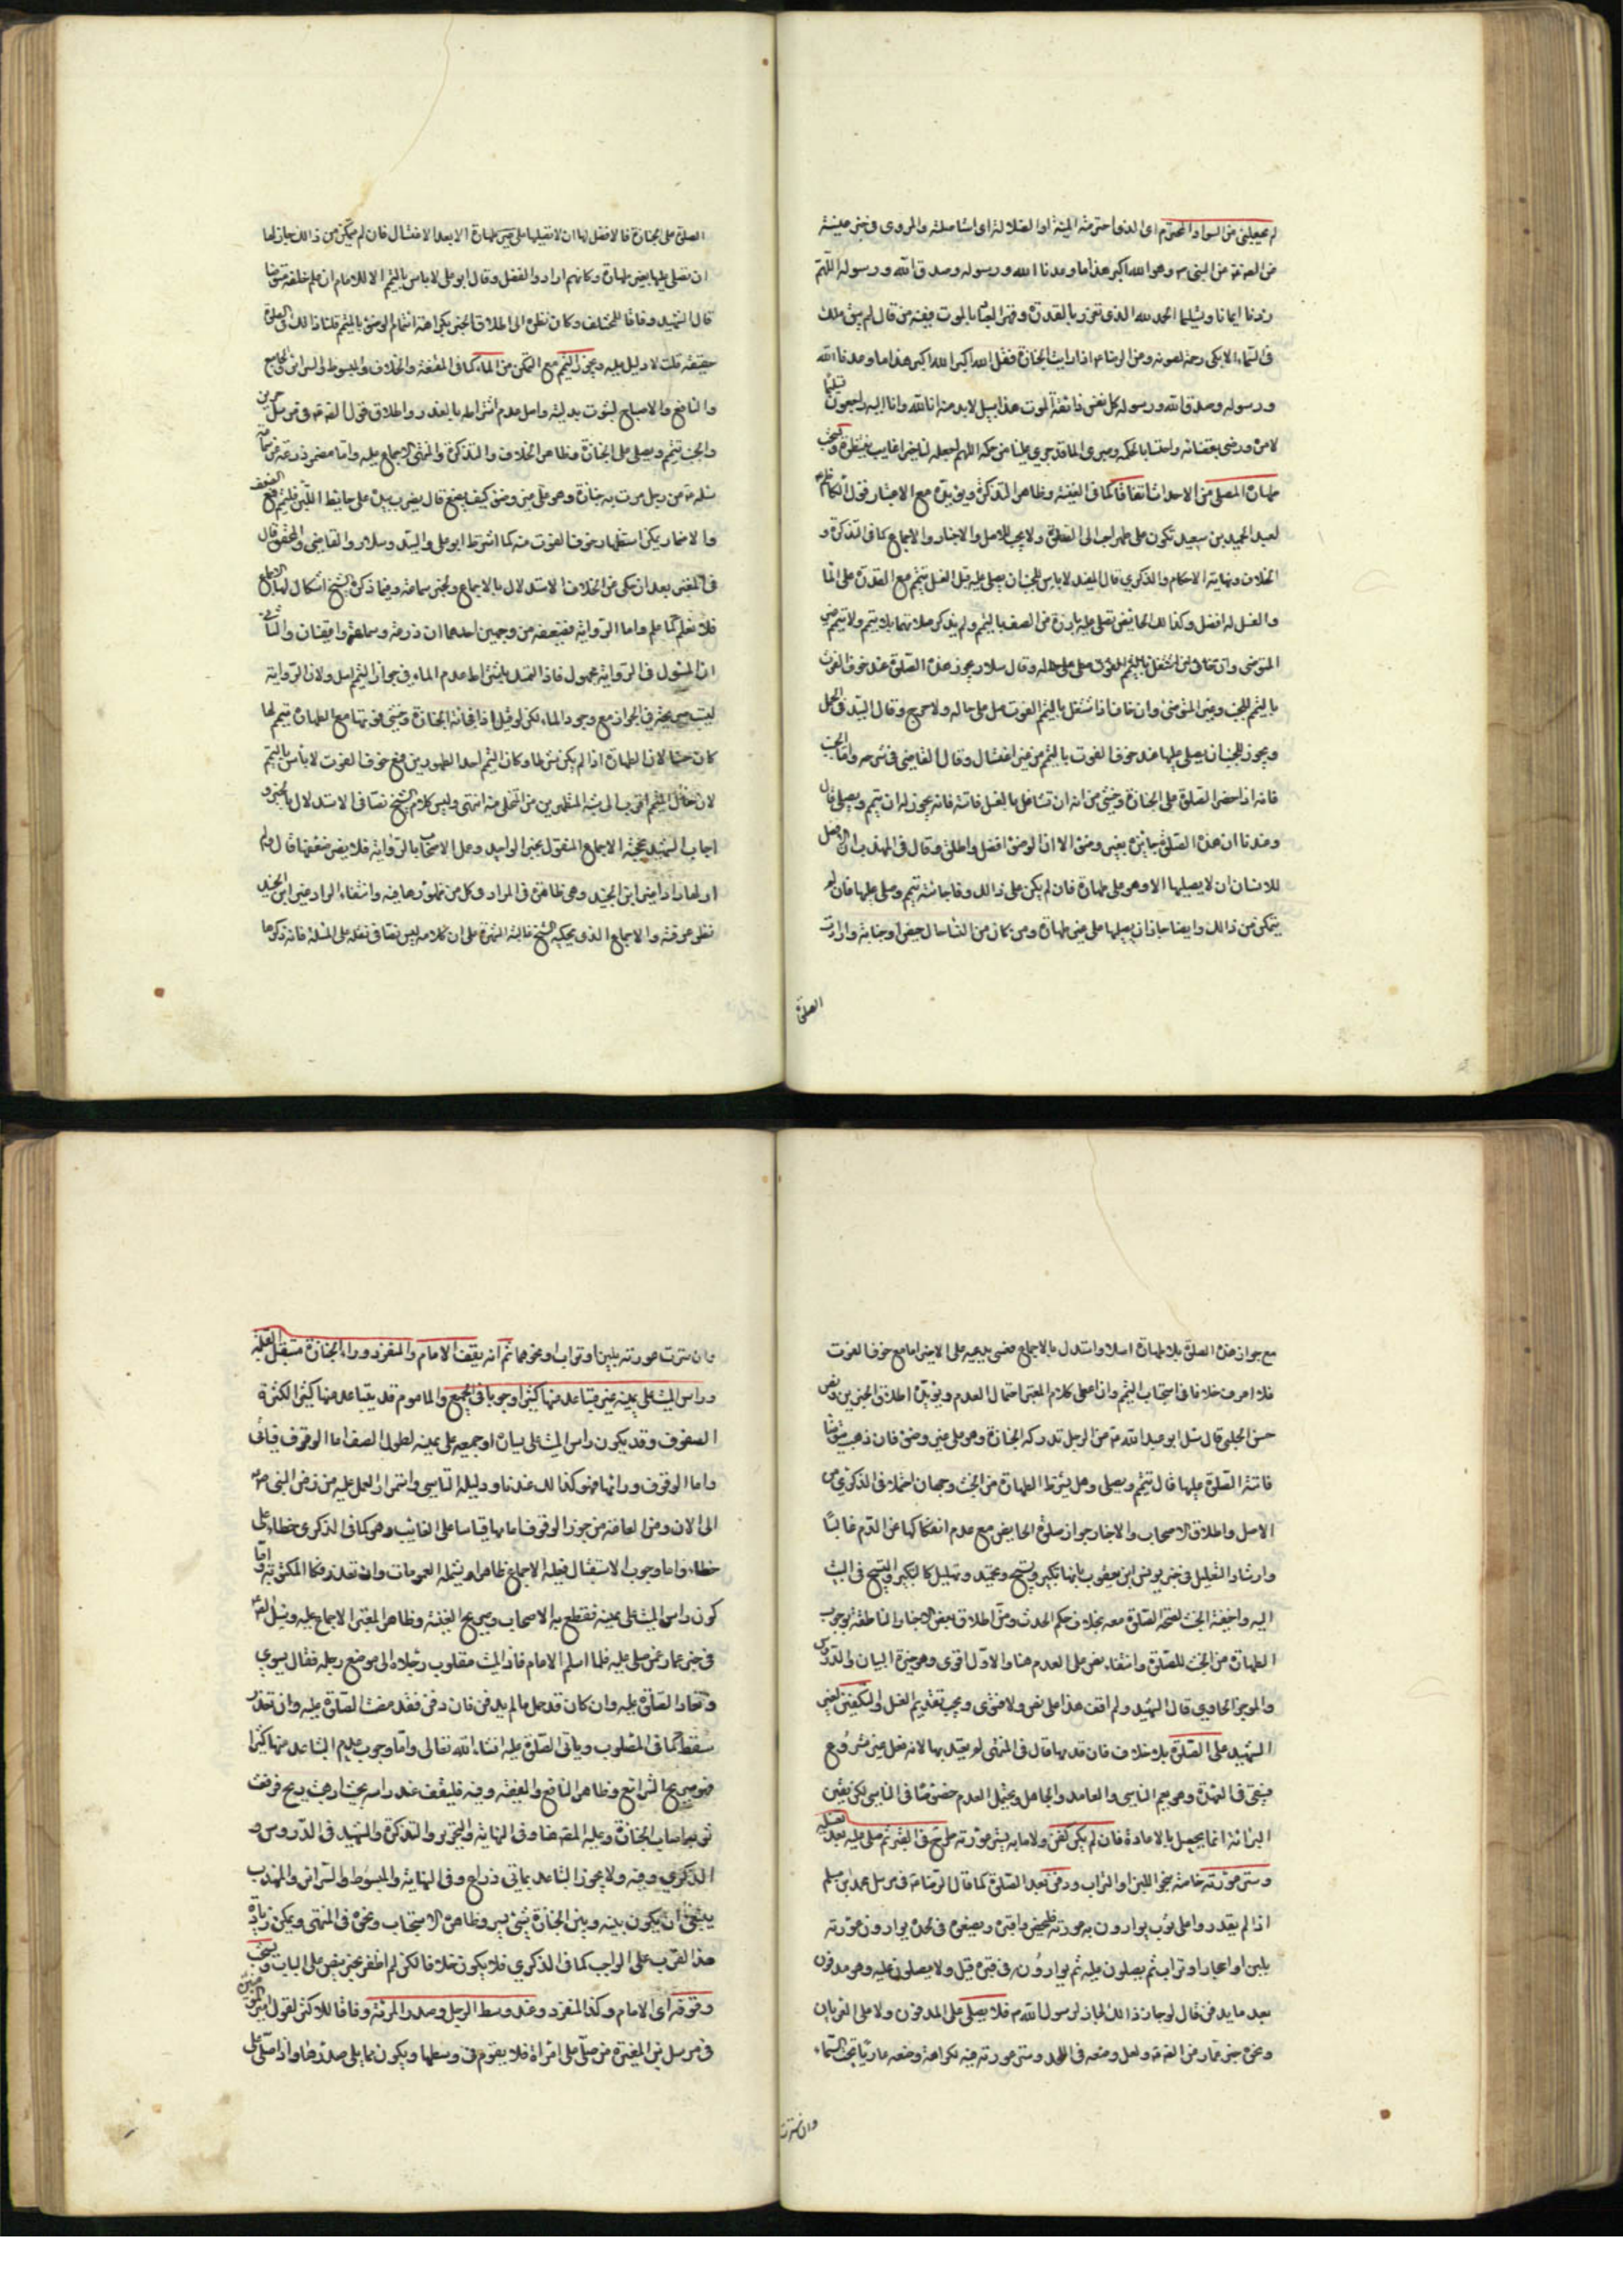 لم يجعلني من السواد المخترم اى الذى اخترمته المنية او الضلالة اى استاصلته والمروى فى خبر
من العترة عن النبى ص وهو الله اكبر هذا ما وعدنا الله ورسوله وصدق الله ورسوله اللهم
زدنا ايمانا وتسليما الحمد لله الذى تعزز بالقدرة وقهر العباد بالموت فعنه من قال لم يبق ملك
فى السماء الا بكى رحمة لصوته وعن الرضا ع اذا رايت الجنازة فقل الله اكبر الله اكبر هذا ما وعدنا الله
ورسوله وصدق الله ورسوله كل نفس ذائقة الموت هذا سبيل لابد منه انا لله وانا اليه راجعون تسليما
لامره ورضى بقضائه واحتسابا لحكمه وصبرا لما قد جرى علينا من حكمه اللهم اجعله لنا خير غايب ننتظره ويستحب
طهارة المصلى من الاحداث اتفاقا كما فى الغنية وظاهر التذكرة ويؤيده مع الاعتبار قول الكاظم
لعبد الحميد بن سعيد تكون على طهر احب الى للصلوة ولا يجب للاصل والاخبار والاجماع كما فى التذكرة و
الخلاف ونهاية الاحكام والذكرى قال المفيد لا باس للجنب ان يصلى عليه قبل الغسل بتيمم مع القدرة على الماء
والغسل له افضل وكذلك الحايض تصلى عليه بارزة عن الصف بالتيمم ولم يذكر صلاتهما بلا تيمم ولا تيمم غير
المتوضى وان خاف ان اشتغل بالتيمم الفوت صلى على حاله وقال سلار ويجوز هذه الصلوة عند خوف الفوت
بالتيمم للجنب وغير المتوضى وان خاف اذا اشتغل بالتيمم الفوت صلى على حاله ولا حرج وقال السيد فى الجمل
ويجوز للجنب ان يصلى عليها عند خوف الفوت بالتيمم من غير اغتسال وقال القاضى فى شرحه واما الجنب
فانه اذا حضر الصلوة على الجنازة وخشى من انه ان تشاغل بالغسل فاتته فانه يجوز له ان يتيمم ويصلى قال
وعندنا ان هذه الصلوة جايزة بغير وضوء الا ان الوضوء افضل واطلق وقال فى المهذب الافضل
للانسان ان لا يصليها الا وهو على طهارة فان لم يكن على ذلك وفاجاته تيمم وصلى عليها فان لم
يتمكن من ذلك وايضا جاز ان يصليها على غير طهارة ومن كان من النساء حال حيض او جنابة وارادت
الصلوة
الصلوة على الجنازة فالافضل لها ان لا تصليها على غير طهارة الا بعد الاغتسال فان لم تتمكن من ذلك جاز لها
ان تصلى عليها بغير طهارة وكانهم ارادوا الفضل وقال ابو على لا باس بالتيمم الا للامام ان علم خلفه متوضا
قال الشهيد وفاقا للمختلف وكان نظره الى اطلاق الخبر بكراهة ائتمام المتوضى بالمتيمم قلنا ذلك فى الصلوة
حقيقة قلت لا دليل عليه ويجوز التيمم مع التمكن من الماء كما فى المقنعة والخلاف والمبسوط والسرائر والجامع
والنافع والاصباح لثبوت بدليته واصل عدم اشتراطه بالعذر واطلاق قول الصادق ع فى مرسل حريز
والجنب يتيمم ويصلى على الجنازة وظاهر الخلاف والتذكرة والمنتهى الاجماع عليه واما مضمر زرعة عن سماعة
سئله عن رجل مرت به جنازة وهو على غير وضوء كيف يصنع قال يضرب بيده على حائط اللبن فليتيمم فمع الضعف
والاضمار يمكن استظهار خوف الفوت منه كما اشترط ابو على والسيد وسلار والقاضى والمحقق قال
فى المعتبر بعد ان حكى عن الخلاف الاستدلال بالاجماع وبخبر سماعة وفيما ذكره الشيخ اشكال اما الاجماع
فلا نعلم كما علم واما الرواية فضعيفة من وجهين احدهما ان زرعة وسماعة واقفيان والثانى
ان المسئول فى الرواية مجهول فاذا التمسك باشتراط عدم الماء فى جواز التيمم اصل ولان الرواية
ليست صريحة فى الجواز مع وجود الماء لكن لو قيل اذا فاجأته الجنازة وخشى فوتها مع الطهارة تيمم لها
كان حسنا لان الطهارة اذا لم يكن شرطا وكان التيمم احد الطهورين فمع خوف الفوت لا باس بالتيمم
لان حال المتيمم اقرب الى شبه المتطهرين من المتخلى منه انتهى وليس كلام الشيخ نصا فى الاستدلال بالخبر و
اجاب الشهيد بحجية الاجماع المنقول بخبر الواحد وعمل الاصحاب بالرواية فلا يضر ضعفها قال ولم
ار لها رادا غير ابن الجنيد وهى ظاهرة فى المراد وكل من ظهورها فيه وانتفاء الراد غير ابن الجنيد
نظر عرفته والاجماع الذى يحكيه الشيخ غالبه الشهرة على ان كلامه ليس نصا فى نقله على المسئلة فانه ذكرها
مع جواز هذه الصلوة بلا طهارة اصلا واستدل بالاجماع فعسى يدعيه على الاخير اما مع خوف الفوت
فلا اعرف خلافا فى استحباب التيمم وان اعطى كلام المعتبر احتمال العدم ويؤيده اطلاق الخبرين ونص
حسن الحلبى قال سئل ابو عبد الله ع عن الرجل تدركه الجنازة وهو على غير وضوء فان ذهب يتوضا
فاتته الصلوة عليها قال يتيمم ويصلى وهل يشترط الطهارة من الخبث وجهان احتملا فى الذكرى من
الاصل واطلاق الاصحاب والاخبار جواز صلوة الحايض مع عدم انفكاكها عن الدم غالبا
وارشاد التعليل فى خبر يونس ابن يعقوب بانها تكبير وتسبيح وتحميد وتهليل كما تكبر وتسبح فى البيت
اليه واخفية الخبث لصحة الصلوة معه بخلاف حكم الحدث ومن اطلاق بعض الاخبار الناطقة بوجوب
الطهارة من الخبث للصلوة وانتفاء نص على العدم هنا والاول اقوى وهو خيرة البيان والدروس
والموجز الحاوى قال الشهيد ولم اقف هذا على نص ولا فتوى ويجب تقديم الغسل والتكفين لغير
الشهيد على الصلوة بلا خلاف فان قدمها قال فى المنتهى لم يعتد بها لانه فعل غير مشروع
فيبقى فى العهدة وهو يعم الناسى والعامد والجاهل ويحتمل العدم خصوصا فى الناسى لكن يقين
البرائة انما يحصل بالاعادة فان لم يكن كفن ولا ما به يستر عورته طرح فى القبر ثم صلى عليه بعد تغسيله
وستر عورته خاصة بنحو اللبن او التراب ودفن بعد الصلوة كما قال الرضا ع فى مرسل محمد بن مسلم
اذا لم يقدروا على ثوب يوارون به عورته فليحفروا قبره ويضعوه فى لحده يوارون عورته
بلبن او احجار او تراب ثم يصلون عليه ثم يوارونه فى قبره قيل ولا يصلون عليه وهو مدفون
بعد ما يدفن قال لو جاز ذلك لجاز لرسول الله ص فلا يصلى على المدفون ولا على العريان
ونحوه خبر عمار عن الصادق ع ولعل وضعه فى اللحد وستر عورته فيه لكراهة وضعه عاريا تحت السماء
وان سترت
وان سترت عورته بلبن او تراب او نحوهما ثم انه يقف الامام والمنفرد وراء الجنازة مستقبل القبلة
وراس الميت على يمينه غير متباعد عنها كثيرا وجوبا فى الجميع والماموم قد يتباعد عنها كثيرا لكثرة
الصفوف وقد يكون راس الميت على يساره او جميعه على يمينه لطول الصف اما الوقوف فياتى
واما الوقوف ورائها فهو كذلك عندنا ودليله التاسى واستمرار العمل عليه من زمن النبى ص
الى الان ومن العامة من جوز الوقوف امامها قياسا على الغايب وهو كما فى الذكرى خطاء على
خطاء واما وجوب الاستقبال فعليه الاجماع ظاهرا ويشمله العمومات وان تعذر فكالمكتوبة واما
كون راس الميت على يمينه فقطع به الاصحاب وصريح الغنية وظاهر المعتبر الاجماع عليه وسئل الصادق ع
فى خبر عمار عمن صلى عليه فلما اسلم الامام فاذا الميت مقلوب رجلاه الى موضع راسه فقال يسوى
وتعاد الصلوة عليه وان كان قد حمل ما لم يدفن فان دفن فقد مضت الصلوة عليه وان تعذر
سقط كما فى المصلوب وياتى الصلوة عليه انشاء الله تعالى واما وجوب عدم التباعد عنها كثيرا
فهو صريح الشرائع وظاهر النافع والفقيه وفيه فليقف عند راسه بحيث ان هبت ريح فرفعت
ثوبه اصاب الجنازة وعليه المقنعة وفى النهاية والتحرير والتذكرة والشهيد فى الدروس و
الذكرى وفيه ولا يجوز التباعد بمائتى ذراع وفى النهاية والمبسوط والسرائر والمهذب
ينبغى ان يكون بينه وبين الجنازة شىء يسير وظاهره الاستحباب ونحوه فى المنتهى ويمكن زيادة
هذا القرب على الواجب كما فى الذكرى فلا يكون خلافا لكن لم اظفر بخبر ينص على الباب ويستحب
وقوفه اى الامام وكذا المنفرد عند وسط الرجل وصدر المراة وفاقا للاكثر لقول امير المؤمنين
فى مرسل ابن المغيرة من صلى على امراة فلا يقوم فى وسطها ويكون مما يلى صدرها واذا صلى على